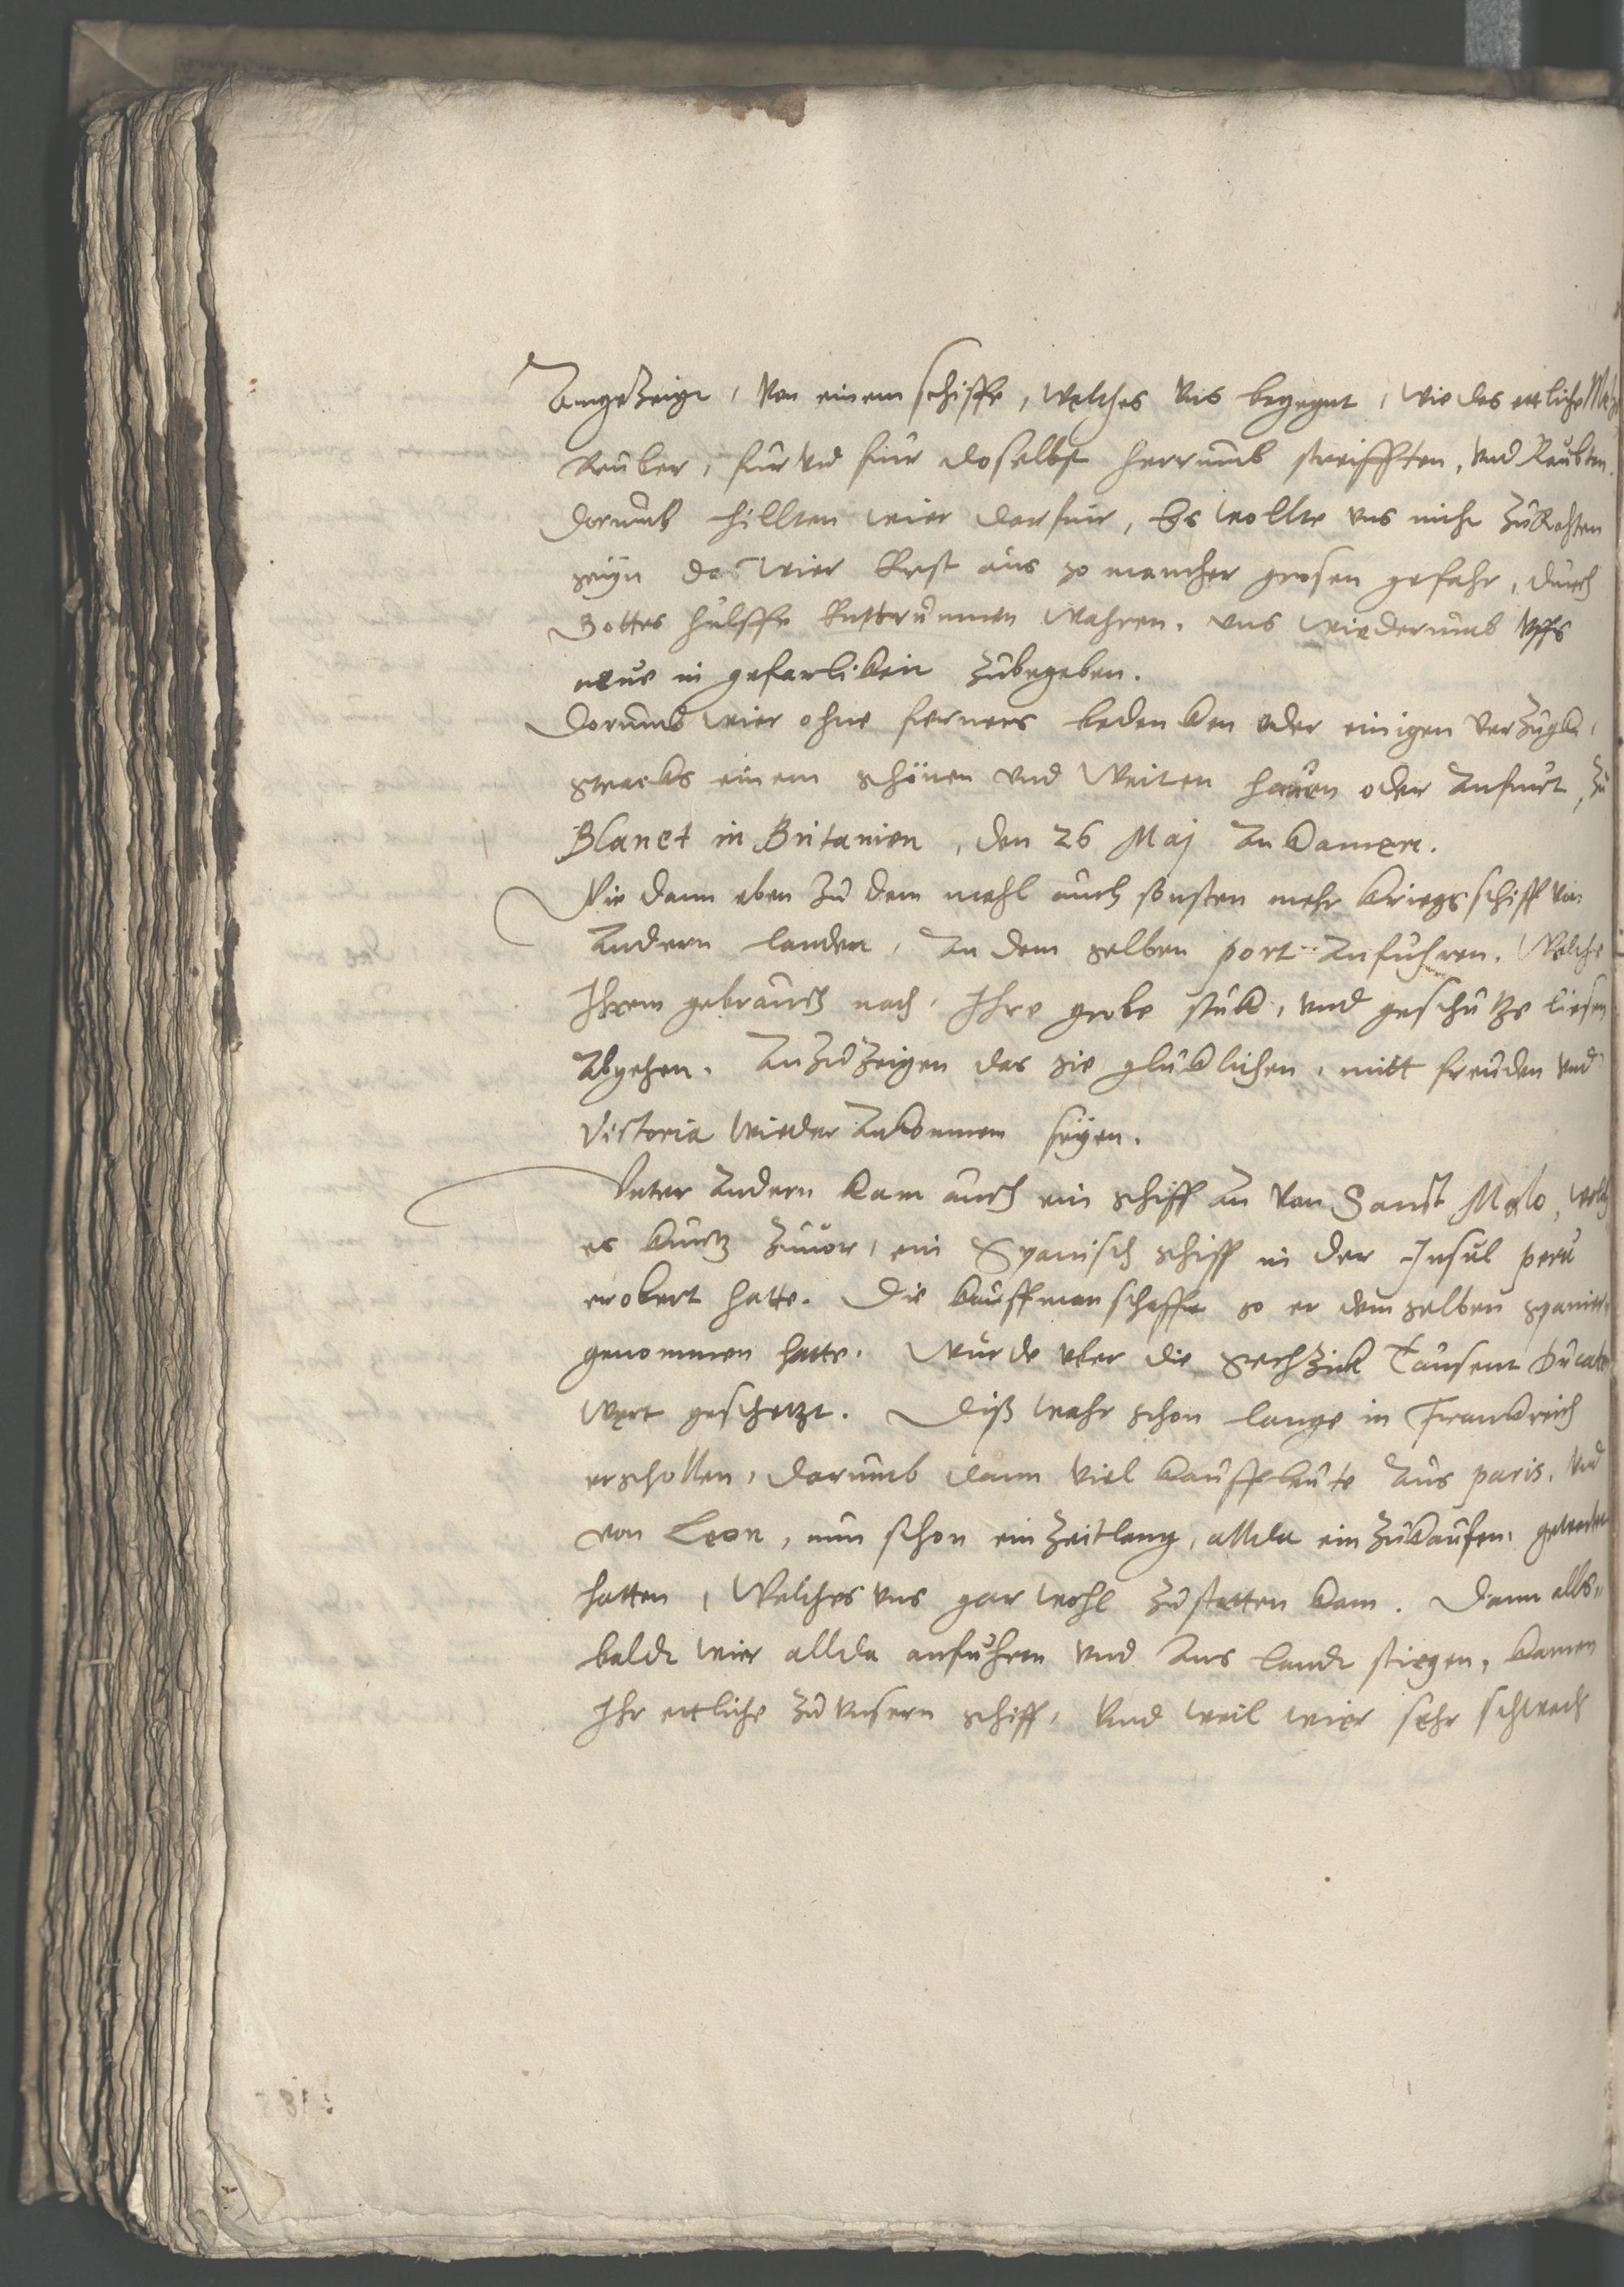 Angezeigt, von einem schiffe, welches uns begegnet, wie das ettliche
Reuber, fur und fur doselbst herrumb streifften, und Raubten.
Dorumb hillten wier darfur, Es wollte uns nicht zu Rahten
seyn das wier Erst aus so mancher grosen gefahr, durch
Gottes hulffe Entrunnen wahren. uns wiederumb uffs
neue in gefarlikeit zubegeben.
Dorumb wier ohne ferners bedenken oder einigen verzugk,
stracks einem schönen und Weiten hauen oder Anfurt, zu
Blanet in Britanien, den 26 Maj Ankamen.
Wie dann eben zu dem mahl auch sonsten mehr kriegs schiff von
Andern landen, An dem selben port Anfuhren. Welche
Ihrem gebrauch nach, Ihre grobe stuk, und geschutze liesen
Abgehen. Anzuzeigen das sie gluklichen, mitt freuden und
Victoria wieder Ankommen seyen.
Unter Andern kam auch ein schiff An von Sanct Malo, welch
es kurtz zuuor, ein Spanisch schiff in der Insul peru
erobert hatte. Die kauffmanschafft so er dem selben spanier
genommen hatte. Wurde uber die sechzick Tausent Ducaten
wert geschetzt. Diß wahr schon lange in Frankreich
erschollen, darumb dann viel kauffleute Aus paris, und
von Leon, nun schon ein zeitlang, allda ein zukaufen, gewartet
hatten, Welches uns gar wohl zu statten kam. Dann alls,,
baldt wier allda anfuhren und Ans landt stiegen, kamen
Ihr ettliche zu unsern schiff, Und weil wier sehr schwach